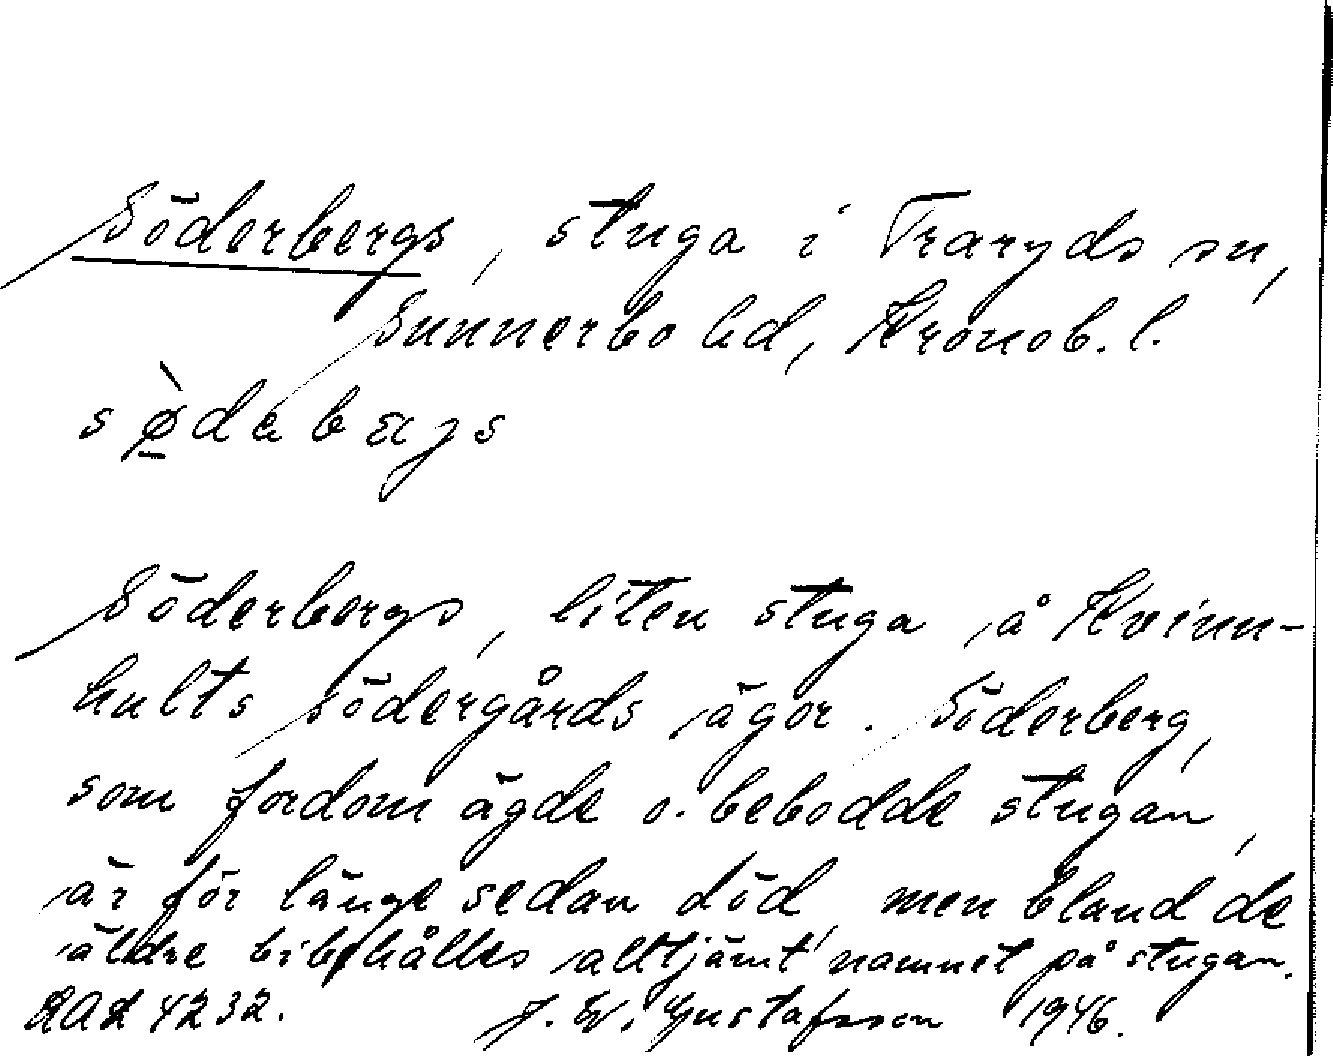 Söderbergs, stuga i Traryds sn,
Sunnerbo hd, Kronob. l.
Söderbergs, liten stuga å Kvinn-
hults södergårds ägor. Söderberg,
som fordom ägde o. bebodde stugan,
är för länge sedan död, men bland de
äldre bibehålles alltjämt namnet på stugan.
4232. J. W. Gustafsson 1946.